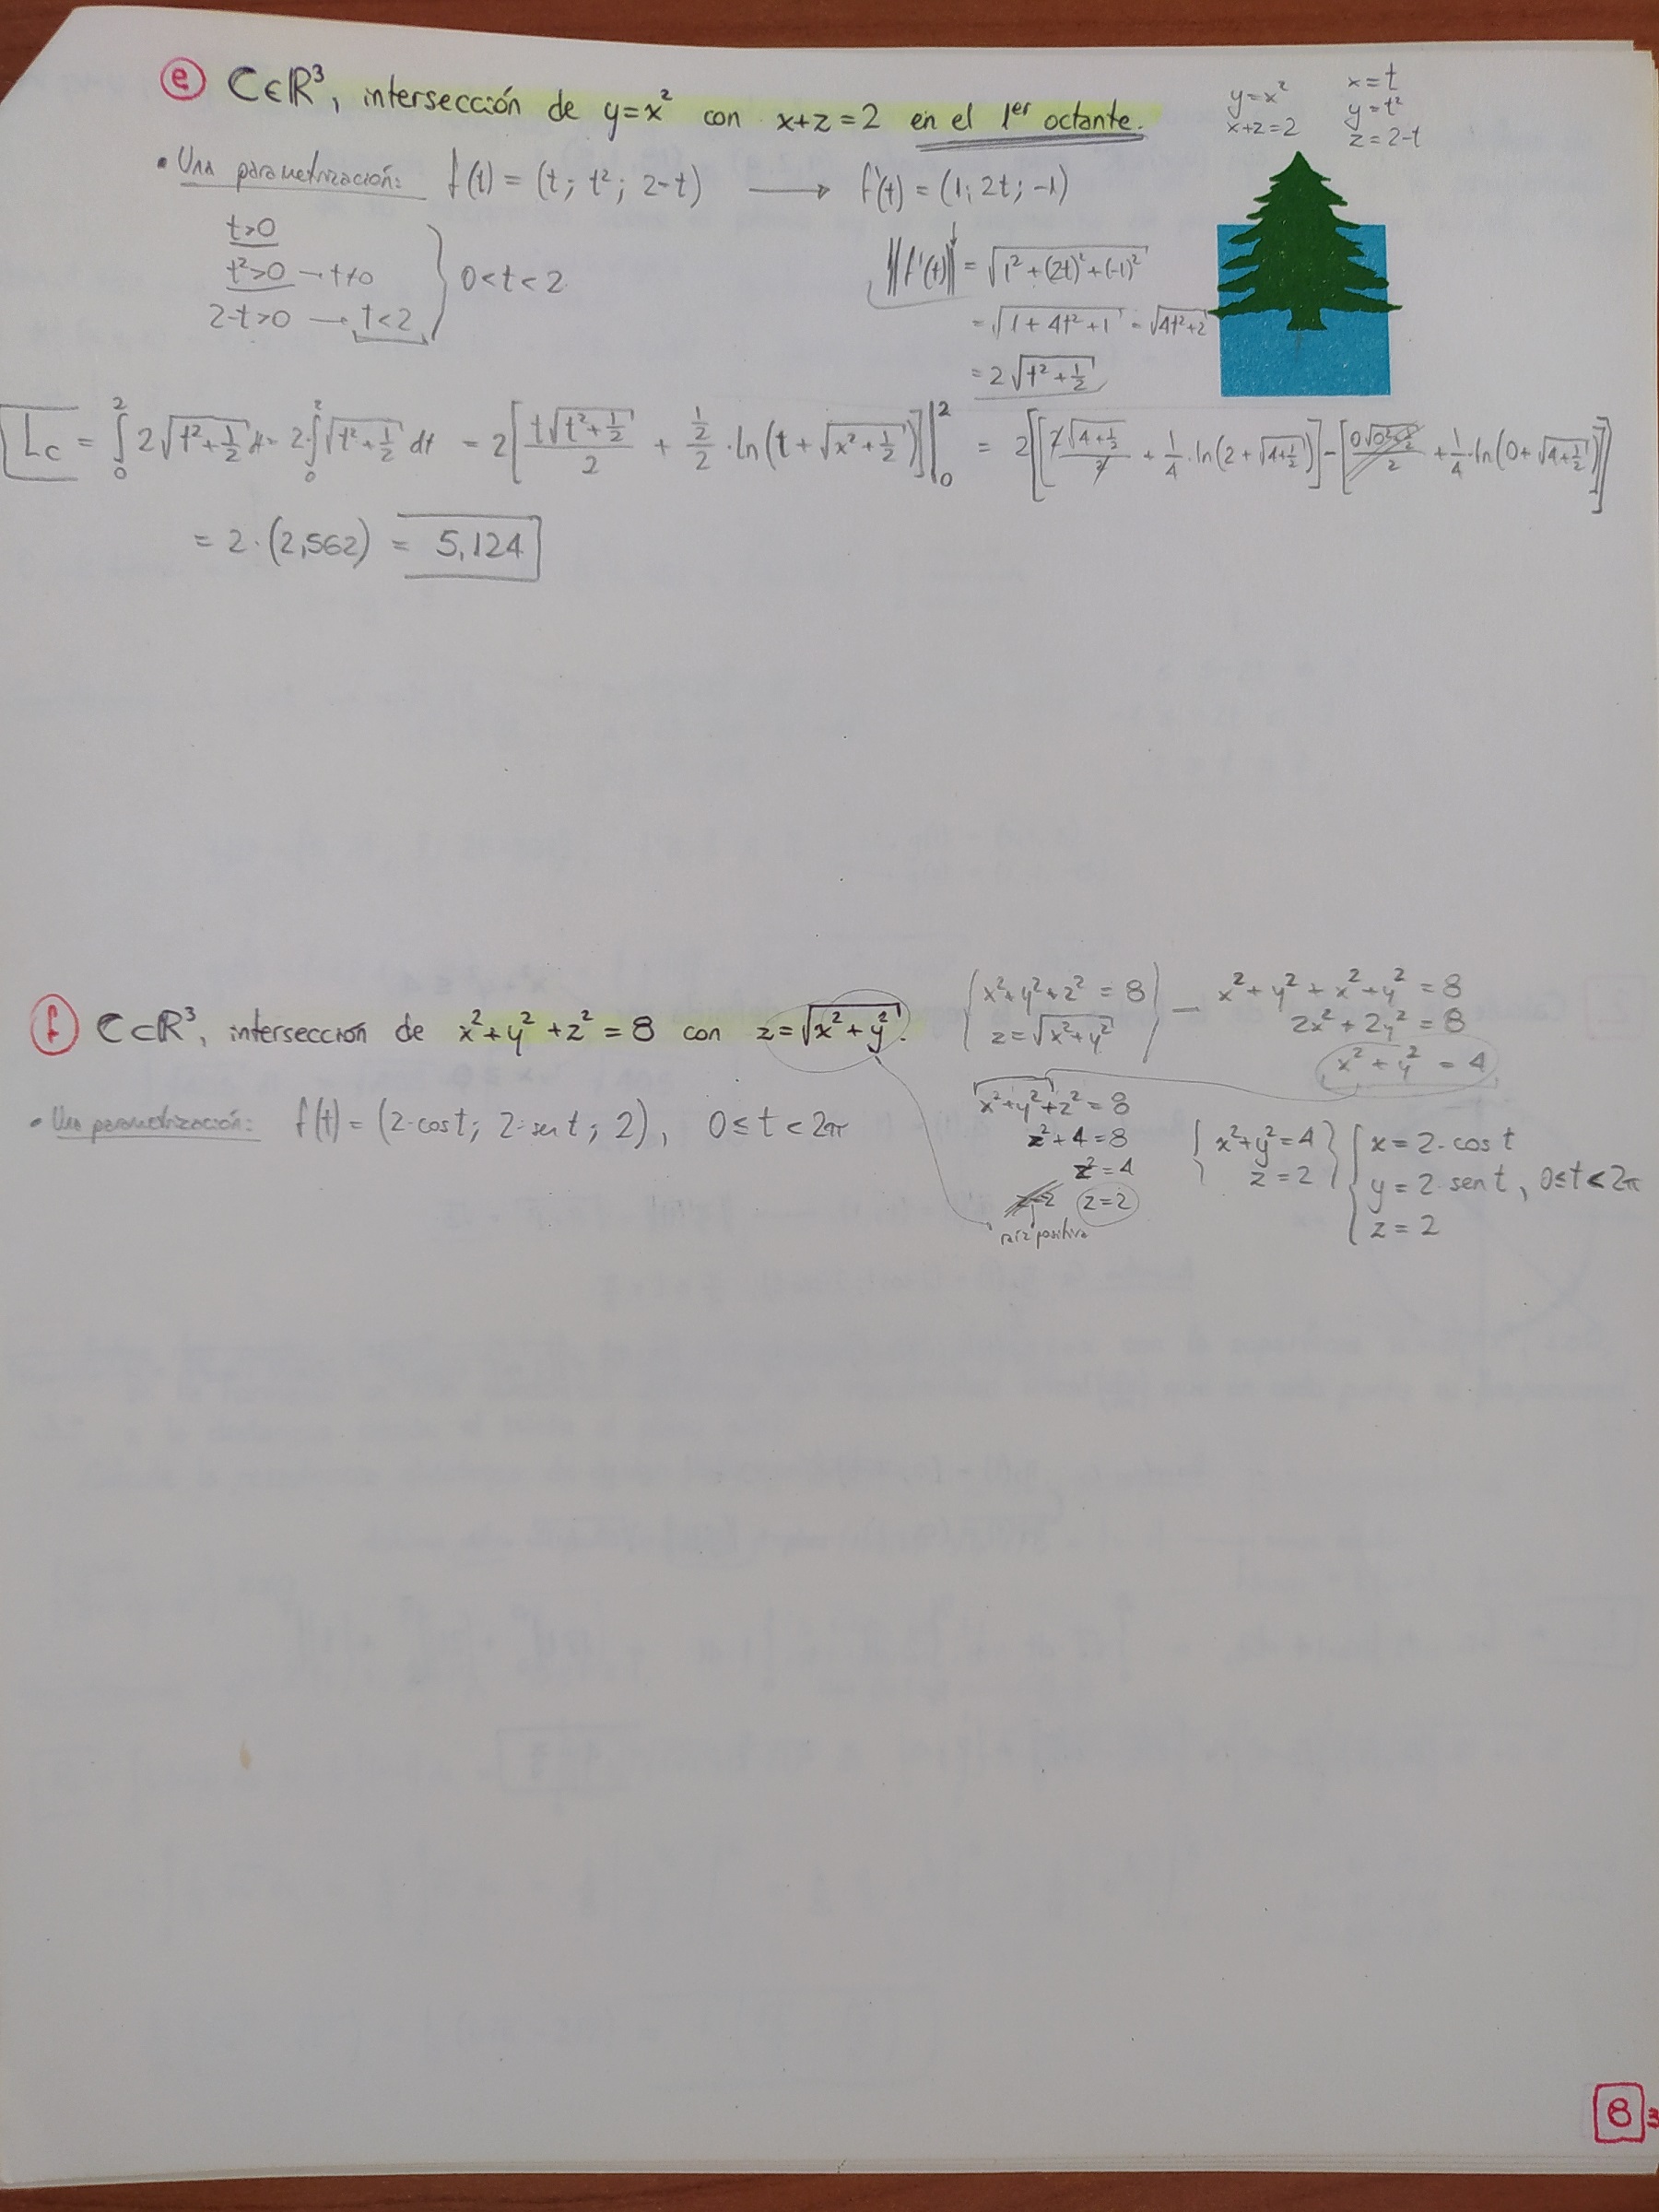 e) C∈ℝ³, intersección de y=x² con x+z=2 en el 1er octante.
y=x²
x+z=2
x=t
y=t²
z=2-t
• Una parametrización: f(t) = (t; t²; 2-t) → f'(t) = (1; 2t; -1)
t>0
t²>0 → t≠0
2-t>0 → t<2
0<t<2
‖f'(t)‖ = √(1²+(2t)²+(-1)²)
= √(1+4t²+1) = √(4t²+2)
= 2√(t²+1/2)
Lc = ∫₀² 2√(t²+1/2) dt = 2·∫₀² √(t²+1/2) dt = 2[t√(t²+1/2)/2 + (1/2)/2 · ln(t+√(x²+1/2))]|₀² = 2[[2√(4+1/2)/2 + 1/4·ln(2+√(4+1/2))] - [0√(0²+1/2)/2 + 1/4·ln(0+√(4+1/2))]]
= 2·(2,562) = 5,124
f) C⊂ℝ³, intersección de x²+y²+z²=8 con z=√(x²+y²).
{x²+y²+z²=8
z=√(x²+y²)} — x²+y²+x²+y²=8
2x²+2y²=8
x²+y²=4
• Una parametrización: f(t) = (2·cost; 2·sent; 2), 0≤t<2π
x²+y²+z²=8
z²+4=8
z²=4
z=2 z=2
raíz positiva
{x²+y²=4
z=2}
{x=2·cost
y=2·sent, 0≤t<2π
z=2
8
3